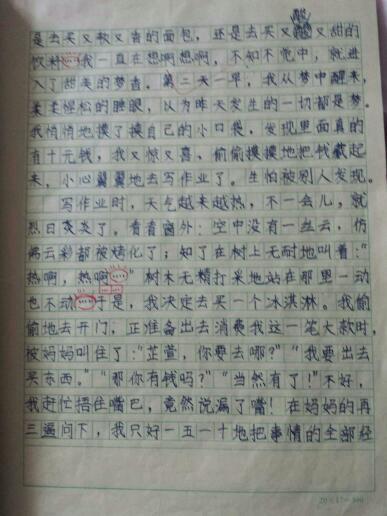 酸
是去买又软又香的面包，还是去买又酸又甜的
饮料……我一直在想啊想啊，不知不觉中，就进
入了甜美的梦香。第二天一早，我从梦中醒来，
柔柔惺松的睡眼，以为昨天发生的一切都是梦。
我悄悄地摸了摸自己的小口袋，发现里面真的
有十元钱，我又惊又喜、偷偷摸摸地把钱藏起
来，小心翼翼地去写作业了。生怕被别人发现。
写作业时，天气越来越热，不一会儿，就
烈日炎炎了。看看窗外：空中没有一丝云，仿
佛云彩都被烤化了；知了在树上无耐地叫着：“
热啊，热啊……”树木无精打采地站在那里一动
也不动……于是，我决定去买一个冰淇淋。我偷
偷地去开门，正准备出去消费我这一笔大款时，
被妈妈叫住了：“芷萱，你要去哪？”“我要出去
买东西。”“那你有钱吗？”“当然有了！”不好，
我赶忙捂住嘴巴，竟然说漏了嘴！在妈妈的再
三逼问下，我只好一五一十地把事情的全部经